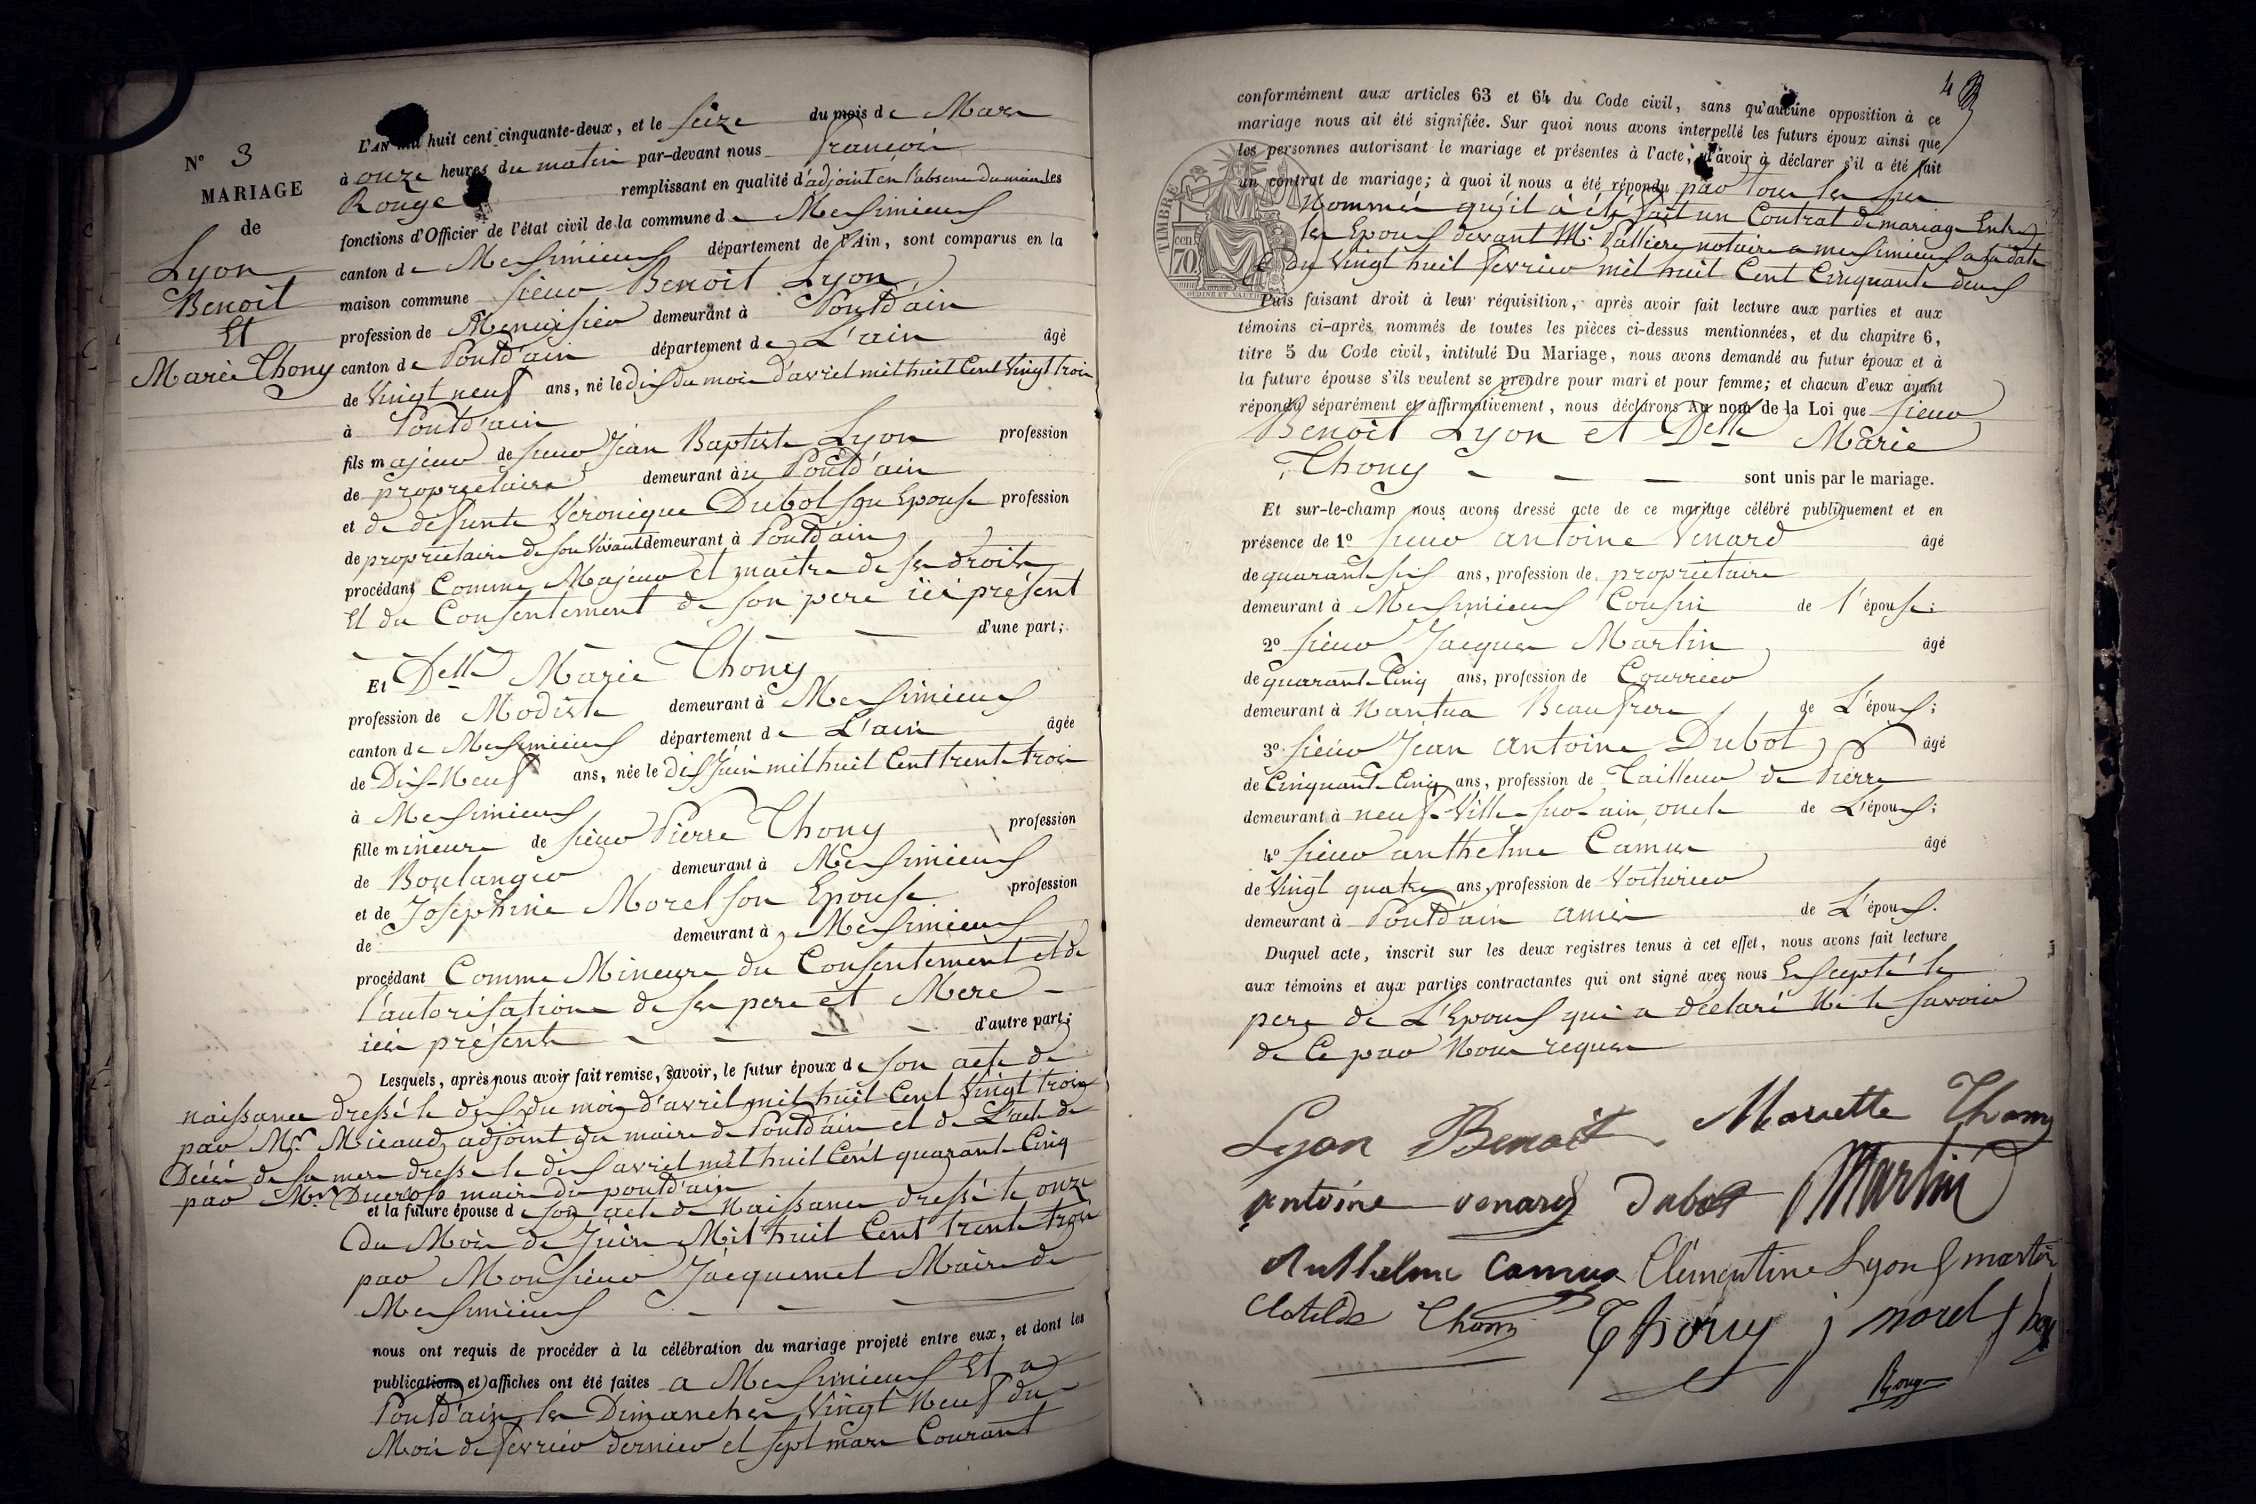 N° 3
MARIAGE
de
Lyon
Benoit
Et
Marie Thony
L'AN mil huit cent cinquante-deux, et le seize du mois de Mars
à onze heures du matin par-devant nous François
Rouge remplissant en qualité d'adjoint en l'absence du maire les
fonctions d'Officier de l'état civil de la commune de Meximieux
canton de Meximieux département de l'Ain, sont comparus en la
maison commune sieur Benoit Lyon
profession de Menuisier demeurant à Pontd'ain
canton de Pontd'ain département de L'ain âgé
de Vingt neuf ans, né le dix du mois d'avril mil huit Cent Vingt trois
à Pontd'ain
fils majeur de sieur Jean Baptiste Lyon profession
de propriétaire demeurant au Pontd'ain
et de défunte Véronique Dubot son Epouse profession
de propriétaire de son Vivant demeurant à Pontd'ain
procédant Comme Majeur et maître de ses droits
Et du Consentement de son père ici présent
d'une part;
Et Delle Marie Thony
profession de Modiste demeurant à Meximieux
canton de Meximieux département de L'ain âgée
de Dix-Neuf ans, née le dix Juin mil huit Cent trente trois
à Meximieux
fille mineure de sieur Pierre Thony profession
de Boulanger demeurant à Meximieux
et de Joséphine Morel son Epouse profession
de demeurant à Meximieux
procédant Comme Mineure du Consentement et de
l'autorisation de ses pere et Mere
ici présents d'autre part;
Lesquels, après nous avoir fait remise, savoir, le futur époux de son acte de
naissance dressé le dix du mois d'avril mil huit Cent Vingt trois
par Mr. Micaud adjoint du maire de Pontd'ain et de L'acte de
Décès de sa mere dressé le dix avril mil huit Cent quarante Cinq
par Mr. Ducros maire du pontd'ain
et la future épouse de son acte de Naissance dressé le onze
du Mois de Juin Mil huit Cent trente trois
par Monsieur Jacquemet Maire de
Meximieux
nous ont requis de procéder à la célébration du mariage projeté entre eux, et dont les
publications et affiches ont été faites a Meximieux Et a
Pontd'ain les Dimanches Vingt Neuf du
Mois de fevrier dernier et sept mars Courant
4
conformément aux articles 63 et 64 du Code civil, sans qu'aucune opposition à ce
mariage nous ait été signifiée. Sur quoi nous avons interpellé les futurs époux ainsi que
les personnes autorisant le mariage et présentes à l'acte, d'avoir à déclarer s'il a été fait
un contrat de mariage; à quoi il nous a été répondu par tous les sus
Nommés qu'il à été fait un Contrat de mariage Entre
les Epoux devant Me. Pallière notaire a meximieux a la date
du Vingt huit fevrier mil huit Cent Cinquante deux
TIMBRE
70 cen
Puis faisant droit à leur réquisition, après avoir fait lecture aux parties et aux
témoins ci-après nommés de toutes les pièces ci-dessus mentionnées, et du chapitre 6,
titre 5 du Code civil, intitulé Du Mariage, nous avons demandé au futur époux et à
la future épouse s'ils veulent se prendre pour mari et pour femme; et chacun d'eux ayant
répondu séparément et affirmativement, nous déclarons Au nom de la Loi que sieur
Benoit Lyon et Delle Marie
Thony sont unis par le mariage.
Et sur-le-champ nous avons dressé acte de ce mariage célébré publiquement et en
présence de 1° sieur antoine Venard âgé
de quarante six ans, profession de propriétaire
demeurant à Meximieux Cousin de l'épouse;
2° sieur Jacques Martin âgé
de quarante Cinq ans, profession de Courrier
demeurant à Nantua Beaufrere de L'époux;
3° sieur Jean antoine Dubot âgé
de Cinquante Cinq ans, profession de Tailleur de Pierre
demeurant à neuf-Ville-sur-ain, oncle de L'époux;
4° sieur anthelme Camus âgé
de Vingt quatre ans, profession de Voiturier
demeurant à Pontd'ain amis de L'époux.
Duquel acte, inscrit sur les deux registres tenus à cet effet, nous avons fait lecture
aux témoins et aux parties contractantes qui ont signé avec nous Excepté le
pere de L'Epoux qui a déclaré Ne le savoir
de Ce par Nous requis
Lyon Benoit Mariette Thony
Antoine venard Dubot Martin
Anthelme Camus Clémentine Lyon f martin
Clotilde Thony Thony j morel f thony
Rouge